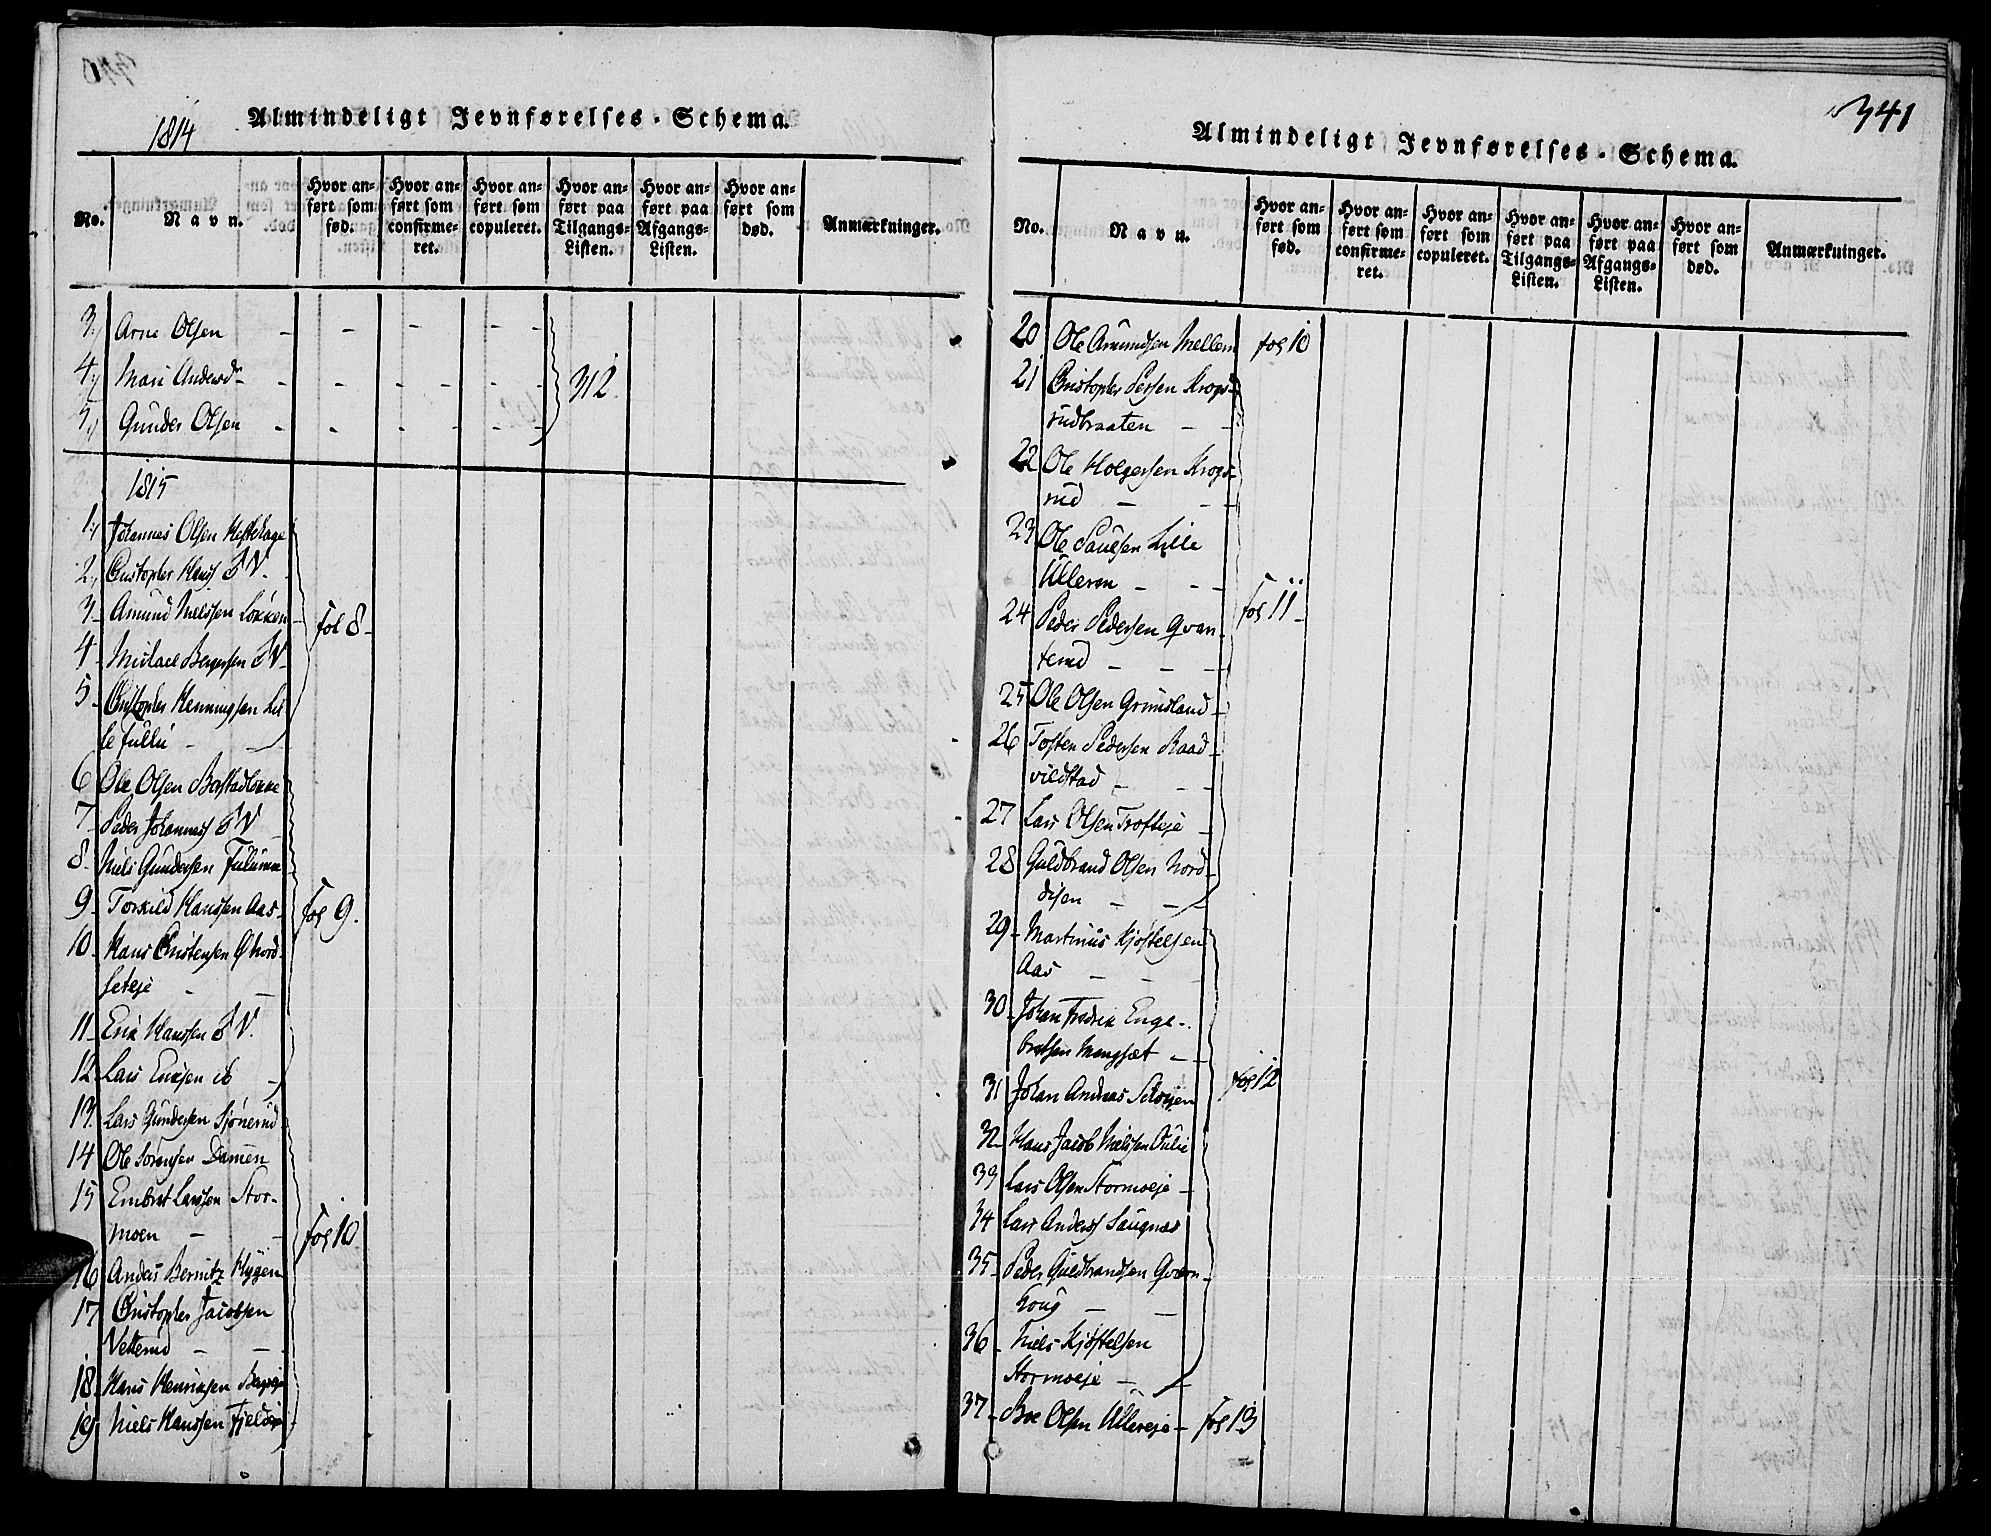 1814
Almindeligt Jevnførelses-Schema.
No. Navn. Hvor anført som fød. Hvor anført som confirmeret. Hvor anført som copuleret. Hvor anført paa Tilgangs-Listen. Hvor anført paa Afgangs-Listen. Hvor anført som død. Anmærkninger.
3, Arne Olsen - - - - -
4, Mari Andersdr - - - - - - 312.
5, Gunder Olsen - - - - - -
1815
1, Johannes Olsen Hestehage
2, Christopher Hanss
3- Amund Nielssen Løkken - fol 8-
4-
5- Christopher Henningsen Lil
le fullu -
6 Ole Olsen Bastadløkke
7- Peder Johanness
8- Niels Gundersen
9- Torkild Hanssen Aas- fol 9.
10- Hans Christensen Ø Nord-
seteje - -
11- Erik Hanssen
12- Lars Eriksen ib -
13. Lars Gundersen Sjønerud
14 Ole Sørensen Damen
15 Embret Larssen Stor-
moen - - fol 10
16 Anders Bernitz Hygen
17 Christopher Jacobsen
Vetterud - -
18- Hans Henriksen
19- Niels Hanssen
341
Almindeligt Jevnførelses-Schema.
No. Navn. Hvor anført som fød. Hvor anført som confirmeret. Hvor anført som copuleret. Hvor anført paa Tilgangs-Listen. Hvor anført paa Afgangs-Listen. Hvor anført som død. Anmærkninger.
20 Ole Amundsen Mellem fol 10
21 Christopher Persen Krogs-
rudbraaten - -
22 Ole Holgersen Krogs-
rud - -
23 Ole Paulsen Lille
Ulleren - - -
24 Peder Pedersen Qvan- fol 11-
terud - - -
25 Ole Olsen Grimsland -
26 Tosten Pedersen Raad-
vildstad - - -
27 Lars Olsen Trofteje -
28 Guldbrand Olsen Nord-
disen - - -
29- Martinus Kjøstelsen
Aas - - -
30- Johan Fredrik Enge-
bretsen Mengset - -
31 Johan Andreas fol 12
32- Hans Jacob Nielssen
33 Lars Olsen Stormoeje -
34 Lars Anderss Saugnæs
35- Peder Guldbrandsen Qværn-
houg - -
36- Niels Kjøstelsen
Stormoeje - -
37- Boe Olsen Ullereje - fol 13